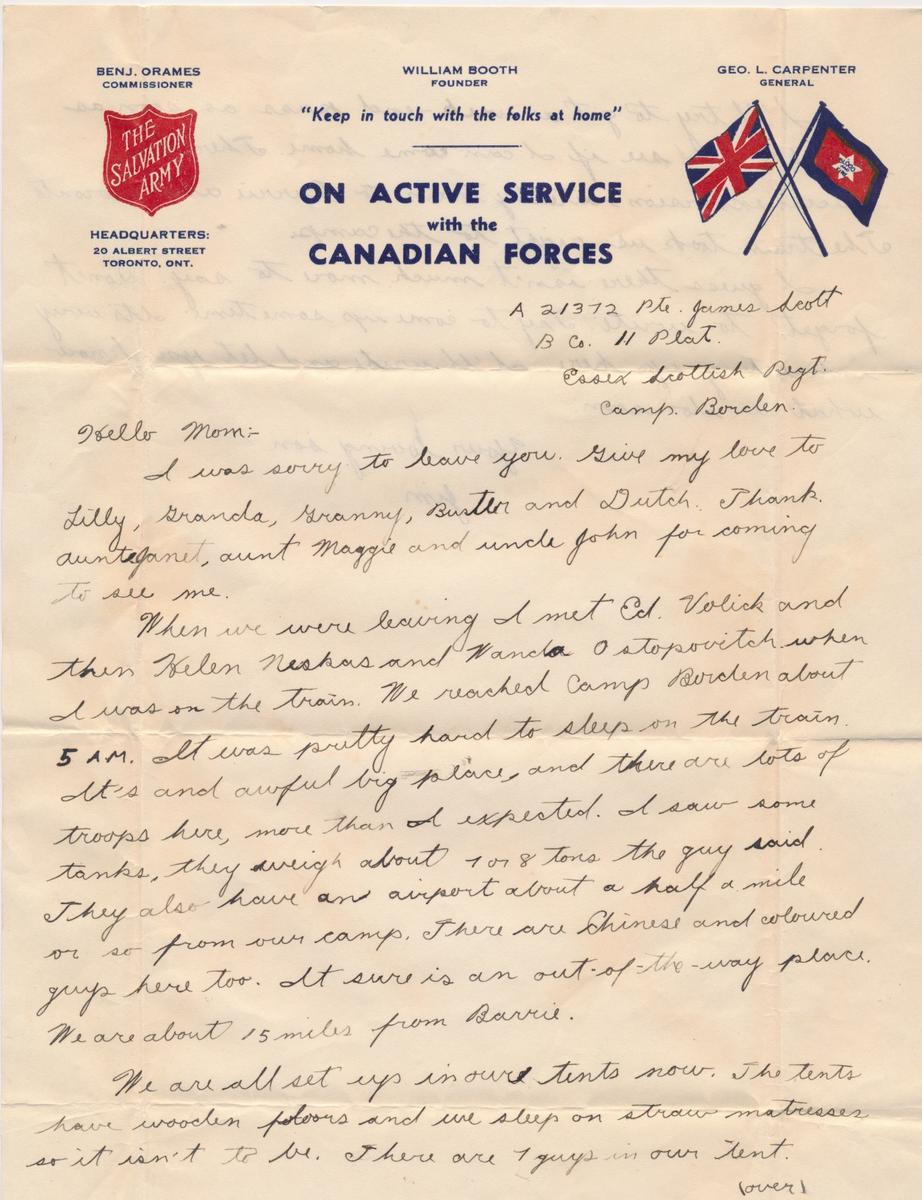 BENJ. ORAMES
COMMISSIONER
WILLIAM BOOTH
FOUNDER
GEO. L. CARPENTER
GENERAL
"Keep in touch with the folks at home"
THE
SALVATION
ARMY
ON ACTIVE SERVICE
with the
CANADIAN FORCES
BLOOD
AND
FIRE
HEADQUARTERS:
20 ALBERT STREET
TORONTO, ONT.
A 21372 Pte. James Scott
B Co. 11 Plat.
Essex Scottish Regt.
Camp. Borden.
Hello Mom:-
I was sorry to leave you. Give my love to
Lilly, Granda, Granny, Buster and Dutch. Thank.
aunte Janet, aunt Maggie and uncle John for coming
to see me.
When we were leaving I met Ed. Volick and
then Helen Neskas and Wanda Ostopovitch when
I was on the train. We reached Camp Borden about
5 A.M. It was pretty hard to sleep on the train.
It's and awful big place, and there are lots of
troops here, more than I expected. I saw some
tanks, they weigh about 7 or 8 tons the guy said.
They also have an airport about a half a mile
or so from our camp. There are Chinese and coloured
guys here too. It sure is an out-of-the-way place.
We are about 15 miles from Barrie.
We are all set up in our tents now. The tents
have wooden floors and we sleep on straw matresses
so it isn't to be. There are 7 guys in our tent.
(over)